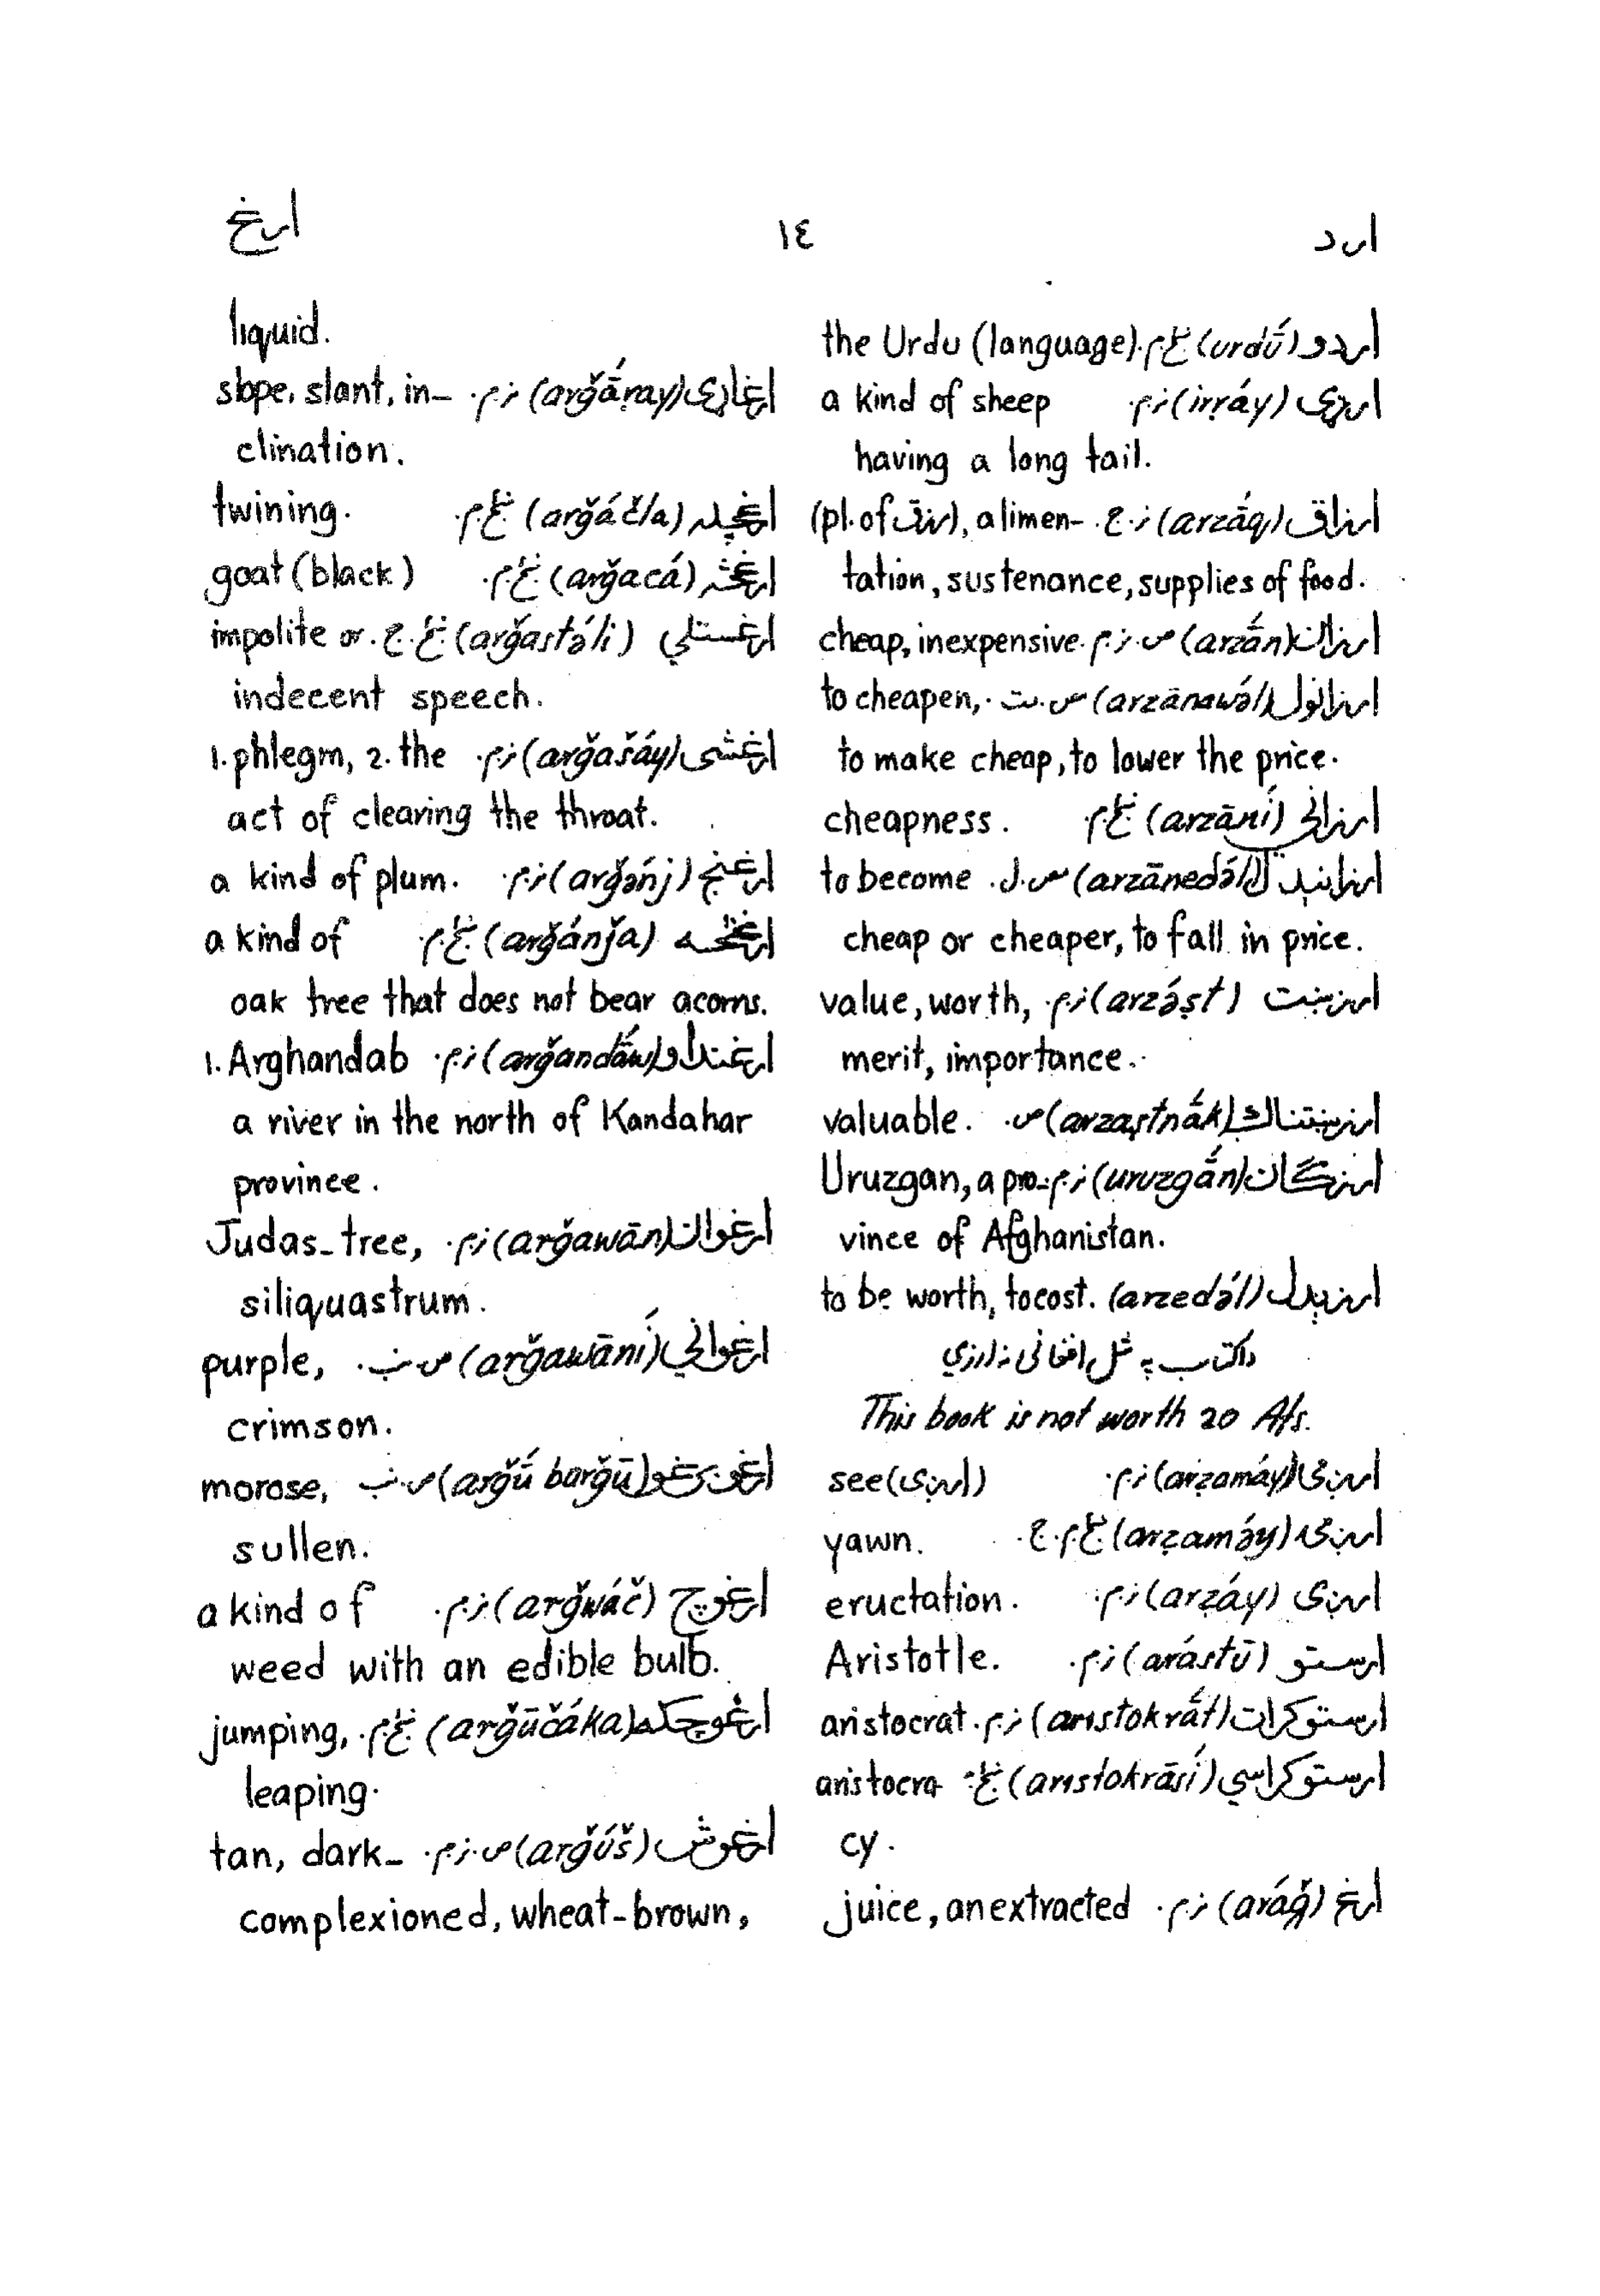 ارد ١٤ ارغ
اردو (urdū́) ځ.م. the Urdu (language).
ارړی (irṛáy) ن.م. a kind of sheep
having a long tail.
ارزاق (arzāq) ن.ج. (pl. of رزق), alimen-
tation, sustenance, supplies of food.
ارزان (arzā́n) ص.ن.م. cheap, inexpensive.
ارزانول (arzānawə́l) ص.مت. to cheapen,
to make cheap, to lower the price.
ارزاني (arzāní) ښځ.م. cheapness.
ارزانېدل (arzānedə́l) ص.ل. to become
cheap or cheaper, to fall in price.
ارزښت (arzə́ṣt) ن.م. value, worth,
merit, importance.
ارزښتناک (arzaṣtnā́k) ص. valuable.
ارزگان (uruzgā́n) ن.م. Uruzgan, a pro-
vince of Afghanistan.
ارزېدل (arzedə́l) to be worth, to cost.
داکتاب په شل افغانی نه ارزي
This book is not worth 20 Afs.
(arẓamáy) ن.م. see (ارږی)
(arẓamə́y) ښځ.م.ج. yawn.
ارږی (arẓáy) ن.م. eructation.
ارستو (arástū) ن.م. Aristotle.
ارستوکرات (aristokrā́t) ن.م. aristocrat.
ارستوکراسي (aristokrāsí) ښځ. aristocra
cy.
ارغ (aráğ) ن.م. juice, an extracted
liquid.
ارغاړی (arğā́ṛay) ن.م. slope, slant, in-
clination.
ارغچله (arğáčla) ښځ.م. twining.
ارغڅه (arğacá) ښځ.م. goat (black)
ارغستلي (arğastə́li) ښځ.ج. impolite or
indecent speech.
ارغشی (arğašáy) ن.م. 1. phlegm, 2. the
act of clearing the throat.
ارغنج (arğə́nj) ن.م. a kind of plum.
ارغنجه (arğánǰa) ښځ.م. a kind of
oak tree that does not bear acorns.
ارغنداو (arğandā́w) ن.م. 1. Arghandab
a river in the north of Kandahar
province.
ارغوان (arğawān) ن.م. Judas-tree,
siliquastrum.
ارغواني (arğawāní) ص.نب. purple,
crimson.
(arğū́ barğū) ص.نب. morose,
sullen.
ارغوچ (arğwáč) ن.م. a kind of
weed with an edible bulb.
ارغوچکه (arğūčáka) ښځ.م. jumping,
leaping.
ارغوش (arğúš) ص.ن.م. tan, dark-
complexioned, wheat-brown,